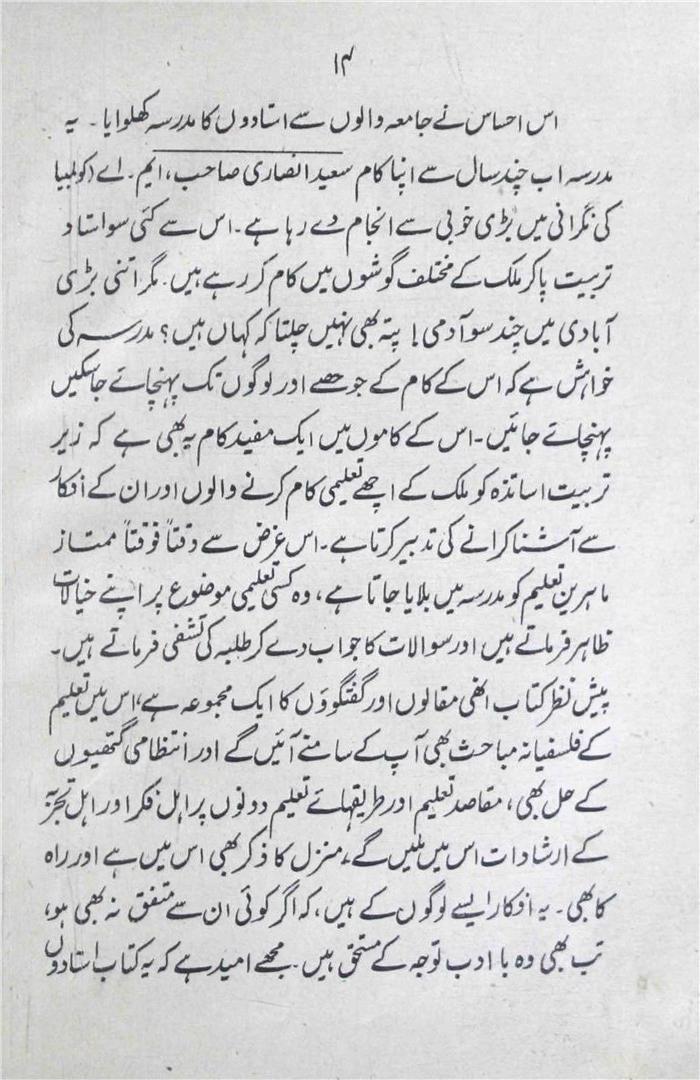 ۱۴
اس احساس نے جامعہ والوں سے استادوں کا مدرسہ کھلوایا۔ یہ
مدرسہ اب چند سال سے اپنا کام سعید انصاری صاحب، ایم۔ اے (کولمبیا
کی نگرانی میں بڑی خوبی سے انجام دے رہا ہے۔ اس سے کئی سو استاد
تربیت پاکر ملک کے مختلف گوشوں میں کام کر رہے ہیں۔ مگر اتنی بڑی
آبادی میں چند سو آدمی! پتہ بھی نہیں چلتا کہ کہاں ہیں؟ مدرسہ کی
خواہش ہے کہ اس کے کام کے جو حصے اور لوگوں تک پہنچائے جاسکیں
پہنچائے جائیں۔ اس کے کاموں میں ایک مفید کام یہ بھی ہے کہ زیر
تربیت اساتذہ کو ملک کے اچھے تعلیمی کام کرنے والوں اور ان کے افکار
سے آشنا کرانے کی تدبیر کرتا ہے۔ اس غرض سے وقتاً فوقتاً ممتاز
ماہرین تعلیم کو مدرسہ میں بلایا جاتا ہے، وہ کسی تعلیمی موضوع پر اپنے خیالات
ظاہر فرماتے ہیں اور سوالات کا جواب دے کر طلبہ کی تشفی فرماتے ہیں۔
پیش نظر کتاب انھی مقالوں اور گفتگوؤں کا ایک مجموعہ ہے، اس میں تعلیم
کے فلسفیانہ مباحث بھی آپ کے سامنے آئیں گے اور انتظامی گتھیوں
کے حل بھی، مقاصد تعلیم اور طریقہائے تعلیم دونوں پر اہل فکر اور اہل تجربہ
کے ارشادات اس میں ملیں گے، منزل کا ذکر بھی اس میں ہے اور راہ
کا بھی۔ یہ افکار ایسے لوگوں کے ہیں، کہ اگر کوئی ان سے متفق نہ بھی ہو،
تب بھی وہ با ادب توجہ کے مستحق ہیں۔ مجھے امید ہے کہ یہ کتاب استادوں